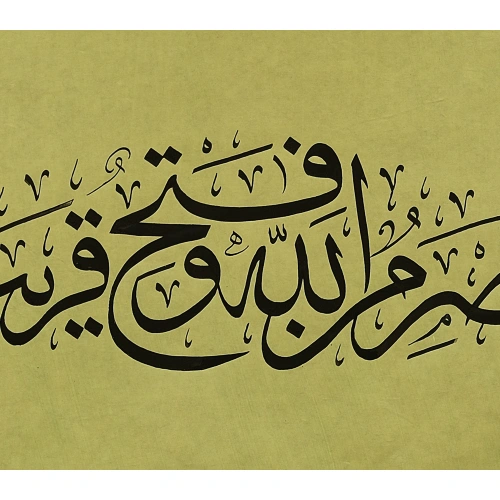 صر من الله وفتح قريب